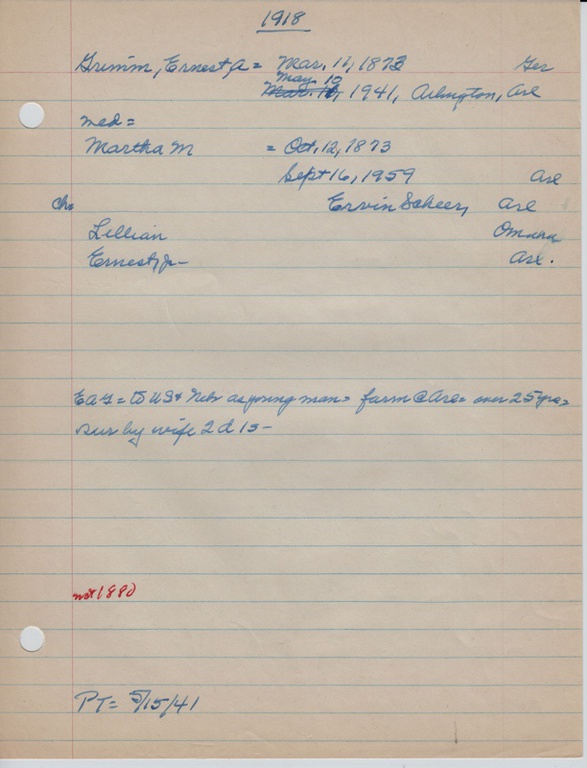 1918
Grimm, Ernest A = Mar. 11, 1873 Ger
May 10
Mar. 10, 1941, Arlington, Arl
med=
Martha M = Oct. 12, 1873
Sept 16, 1959 Arl
ch= Ervin Scheer, Arl
Lillian Omaha
Ernest, Jr - Arl.
EAG = to US & Neb as young man = farm @ Arl = over 25 yrs =
sur by wife 2 d 1s -
not 1880
PT = 5/15/41